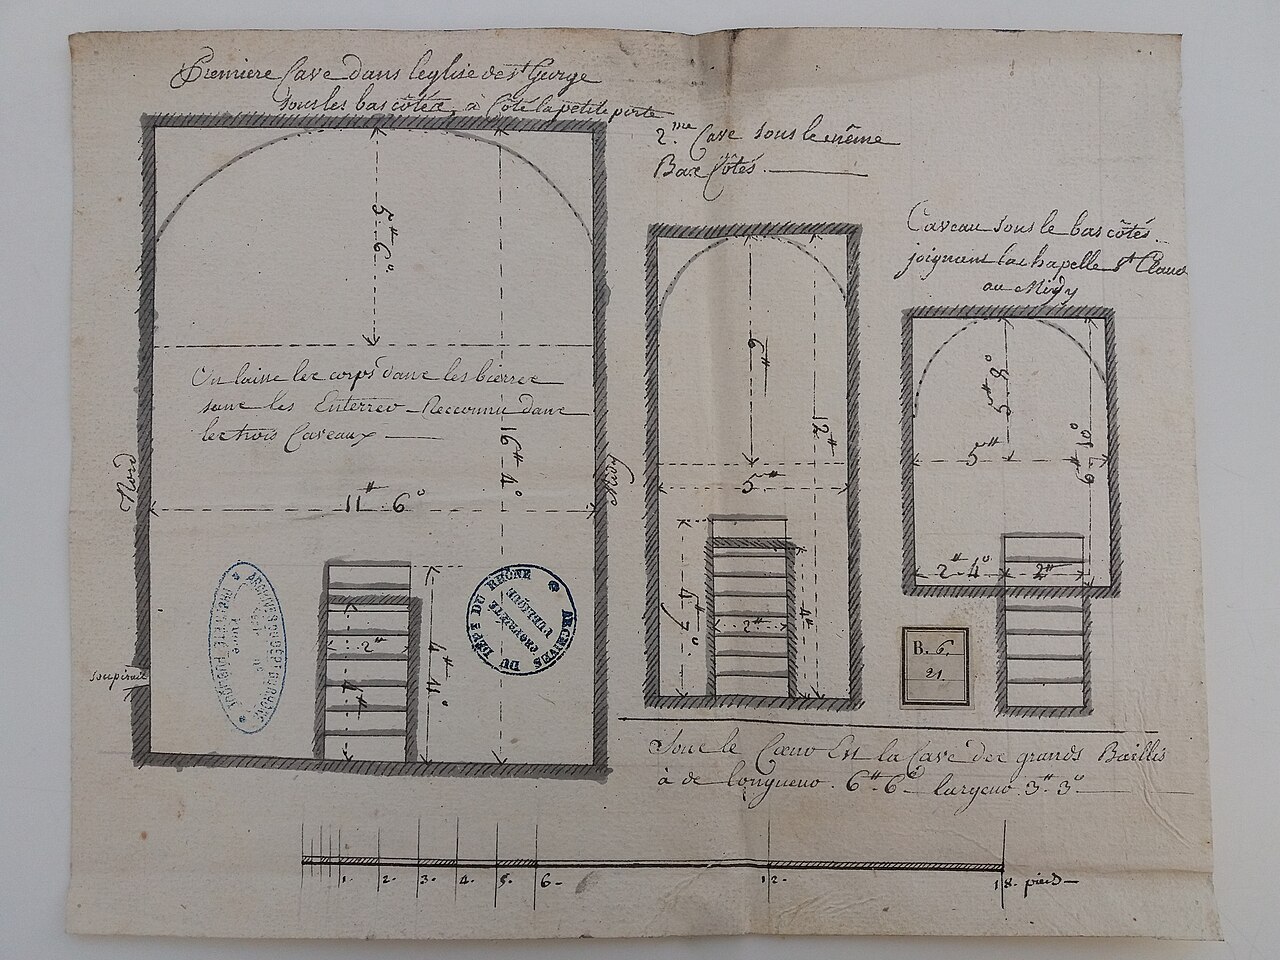 Premiere Cave dans leglise de St George
sous les bas côtés, à Côté la petite porte
5# 6°
On laisse les corps dans les bierres
sans les Enterrer - Reconnu dans
les trois Caveaux
16# 4°
Nord
Midy
11# 6°
soupirail
2#
4#
4# 11°
ARCHIVES DU DÉPT DU RHÔNE
PROPRIÉTÉ PUBLIQUE
ARCHIVES DU DÉPT DU RHÔNE
PROPRIÉTÉ
PUBLIQUE
2.me Cave sous le même
Bas Côtés.
6#
12#
5#
2#
4#
Caveau sous le bas côtés
joignant la chapelle St Claude
au Midy
5# 8°
5#
6# 10°
2# 4°
2#
B. 6.
21.
Sous le Cœur Est la Cave des grands Baillis
à de longueur. 6# 6° largeur 3# 3°
1. 2. 3. 4. 5. 6. 12. 18. pieds